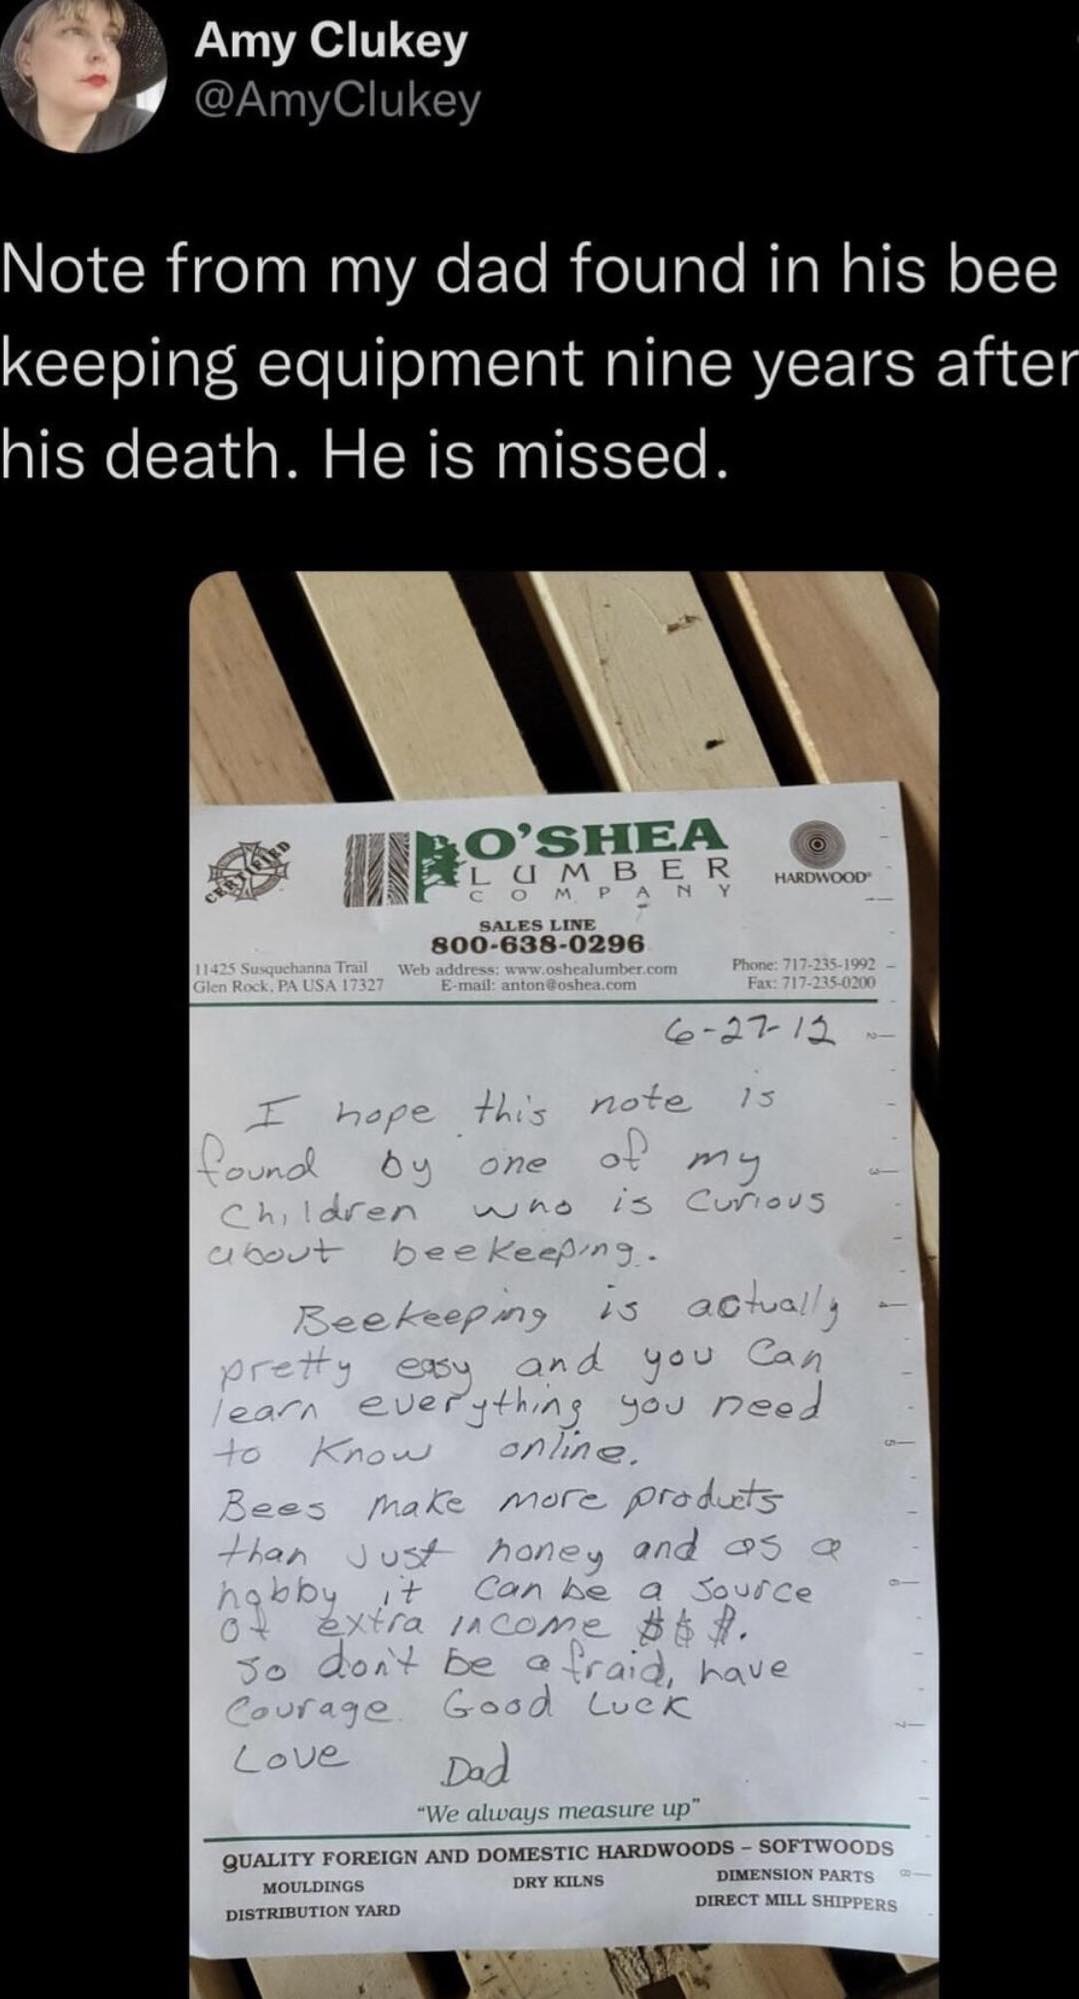 Amy Clukey
@AmyClukey
Note from my dad found in his bee
keeping equipment nine years after
his death. He is missed.
CERTIFIED
O'SHEA
LUMBER
COMPANY
HARDWOOD
SALES LINE
800-638-0296
11425 Susquehanna Trail
Glen Rock, PA USA 17327
Web address: www.oshealumber.com
E-mail: anton@oshea.com
Phone: 717-235-1992
Fax: 717-235-0200
6-27-12
I hope this note is
found by one of my
Children who is curious
about beekeeping.
Beekeeping is actually
pretty easy and you can
learn everything you need
to know online.
Bees make more products
than just honey and as a
hobby it can be a source
of extra income $$$.
So don't be afraid, have
Courage. Good Luck
Love Dad
"We always measure up"
QUALITY FOREIGN AND DOMESTIC HARDWOODS – SOFTWOODS
MOULDINGS
DRY KILNS
DIMENSION PARTS
DISTRIBUTION YARD
DIRECT MILL SHIPPERS
2
3
4
5
6
7
8